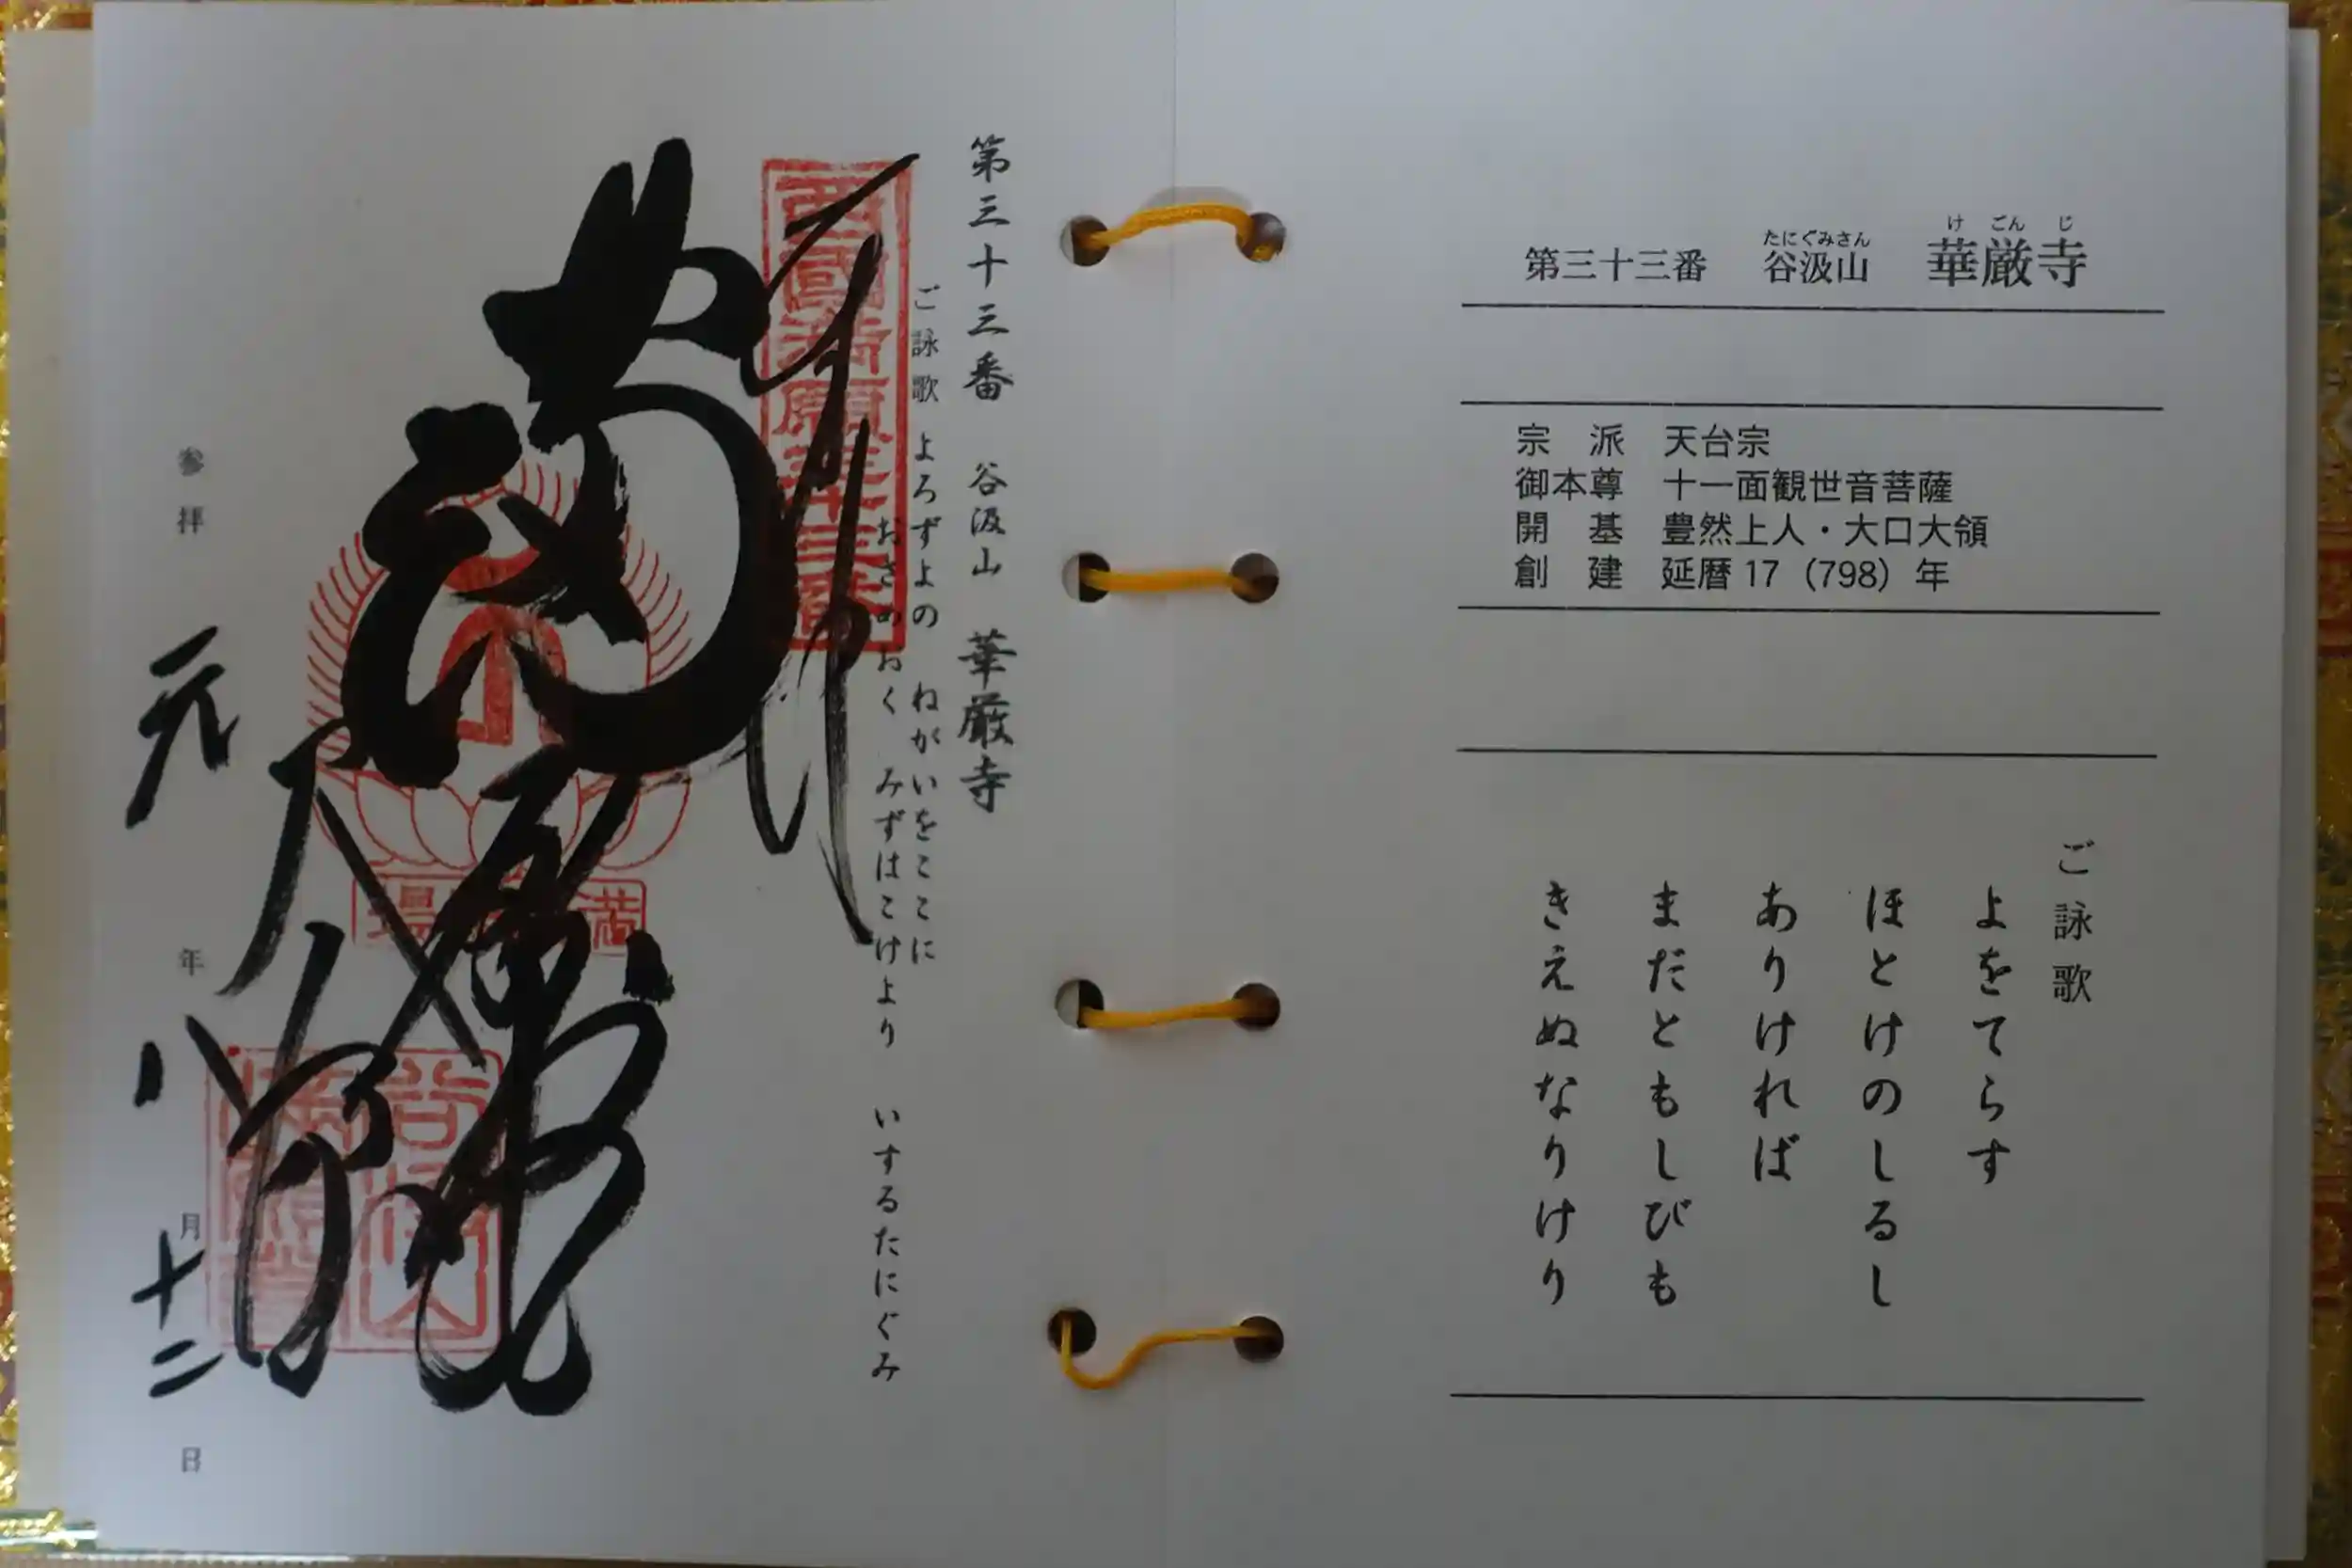 第三十三番 谷汲山 華厳寺
たにぐみさん けごんじ
宗派 天台宗
御本尊 十一面観世音菩薩
開基 豊然上人・大口大領
創建 延暦17（798）年
ご詠歌
よをてらす
ほとけのしるし
ありければ
まだともしびも
きえぬなりけり
第三十三番 谷汲山 華厳寺
ご詠歌 よろずよの ねがいをここに
おさめおく みずはこけより いするたにぐみ
西國満願第三十三番
参拝 元年 八月 十二日